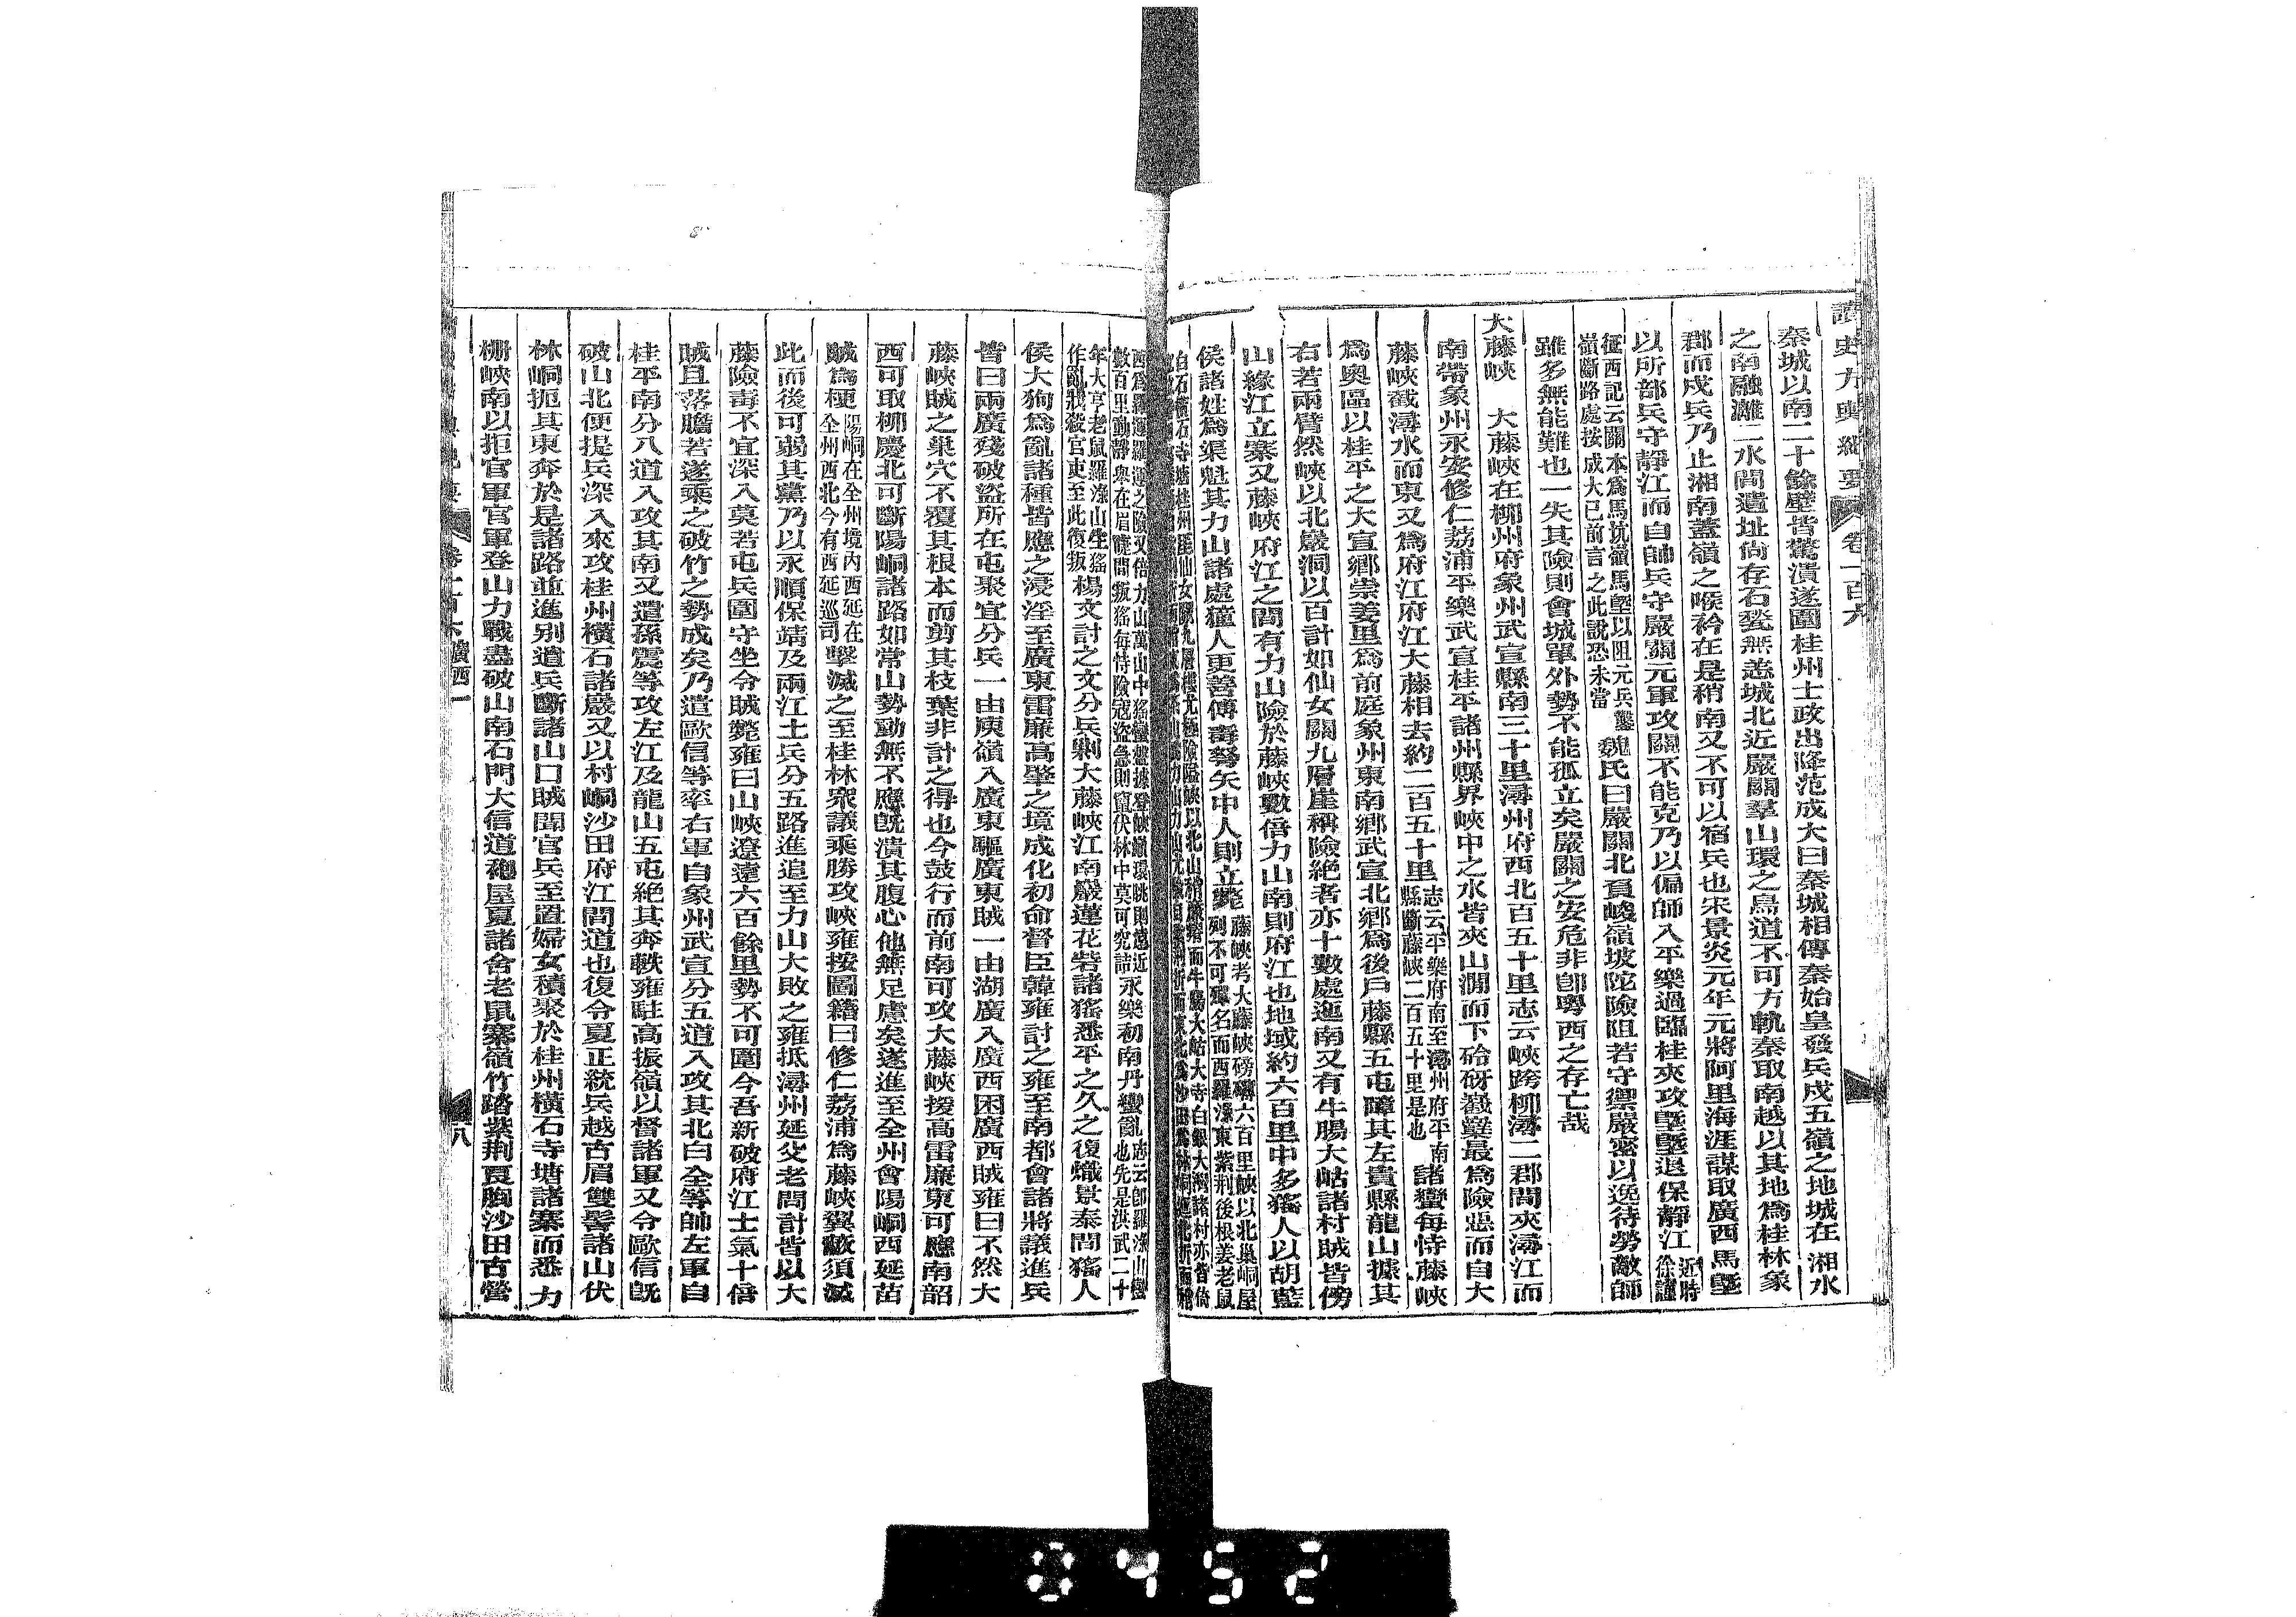 讀史方輿紀要 卷一百六
秦城以南二十餘壁皆驚潰遂圍桂州士政出降范成大曰秦城相傳秦始皇發兵戍五嶺之地城在湘水
之南融灕二水間遺址尚存石甃無恙城北近嚴關羣山環之鳥道不可方軌秦取南越以其地爲桂林象
郡而戍兵乃止湘南蓋嶺之喉衿在是稍南又不可以宿兵也宋景炎元年元將阿里海涯謀取廣西馬塈
以所部兵守靜江而自帥兵守嚴關元軍攻關不能克乃以偏師入平樂過臨桂夾攻塈塈退保靜江
近時徐謹
征西記云關本爲馬坑嶺馬塈以阻元兵鑿
嶺斷路處按成大已前言之此說恐未當
魏氏曰嚴關北負峻嶺坡陀險阻若守禦嚴密以逸待勞敵師
雖多無能難也一失其險則會城單外勢不能孤立矣嚴關之安危非卽粵西之存亡哉
大藤峽 大藤峽在柳州府象州武宣縣南三十里潯州府西北百五十里志云峽跨柳潯二郡間夾潯江而
南帶象州永安修仁荔浦平樂武宣桂平諸州縣界峽中之水皆夾山澗而下硲砑巖㠔最爲險惡而自大
藤峽截潯水而東又爲府江府江大藤相去約二百五十里
志云平樂府南至潯州府平南
縣斷藤峽二百五十里是也
諸蠻每恃藤峽
爲奧區以桂平之大宣鄉崇姜里爲前庭象州東南鄉武宣北鄉爲後戶藤縣五屯障其左貴縣龍山據其
右若兩臂然峽以北巖洞以百計如仙女關九層崖稱險絶者亦十數處迤南又有牛腸大岵諸村賊皆傍
山緣江立寨又藤峽府江之間有力山險於藤峽數倍力山南則府江也地域約六百里中多猺人以胡藍
侯諸姓爲渠魁其力山諸處獞人更善傅毒弩矢中人則立斃
藤峽考大藤峽磅礴六百里峽以北巢峒屋
列不可殫名而西羅淥東紫荆後根姜老鼠
西爲羅渾羅運之險又倍力山萬山中猺蠻盤據登峽巓環眺則遠近
數百里動靜舉在眉睫間叛猺每恃險寇盜急則竄伏林中莫可究詰
永樂初南丹蠻亂
志云卽羅淥山蠻
也先是洪武二十
年大亨老鼠羅淥山生猺
作亂戕殺官吏至此復叛
楊文討之文分兵剿大藤峽江南巖蓮花砦諸猺悉平之久之復熾景泰間猺人
侯大狗爲亂諸種皆應之浸淫至廣東雷廉高肇之境成化初命督臣韓雍討之雍至南都會諸將議進兵
皆曰兩廣殘破盜所在屯聚宜分兵一由庾嶺入廣東驅廣東賊一由湖廣入廣西困廣西賊雍曰不然大
藤峽賊之巢穴不覆其根本而剪其枝葉非計之得也今鼓行而前南可攻大藤峽援高雷廉東可應南韶
西可取柳慶北可斷陽峒諸路如常山勢動無不應旣潰其腹心他無足慮矣遂進至全州會陽峒西延苗
賊爲梗
陽峒在全州境内西延在
全州西北今有西延巡司
擊滅之至桂林衆議乘勝攻峽雍按圖籍曰修仁荔浦爲藤峽翼蔽須滅
此而後可弱其黨乃以永順保靖及兩江土兵分五路進追至力山大敗之雍抵潯州延父老問計皆以大
藤險毒不宜深入莫若屯兵圍守坐令賊斃雍曰山峽遼遠六百餘里勢不可圍今吾新破府江士氣十倍
賊且落膽若遂乘之破竹之勢成矣乃遣歐信等率右軍自象州武宣分五道入攻其北白全等帥左軍自
桂平南分八道入攻其南又遣孫震等攻左江及龍山五屯絶其奔軼雍駐高振嶺以督諸軍又令歐信旣
破山北便提兵深入來攻桂州橫石諸巖又以村峒沙田府江間道也復令夏正統兵越古眉雙髻諸山伏
林峒扼其東奔於是諸路並進別遣兵斷諸山口賊聞官兵至置婦女積聚於桂州橫石寺塘諸寨而悉力
柵峽南以拒官軍官軍登山力戰盡破山南石門大信道砲屋夏諸舍老鼠寨嶺竹踏紫荆㒵胸沙田古營
卷一百六 廣西一
八
0452